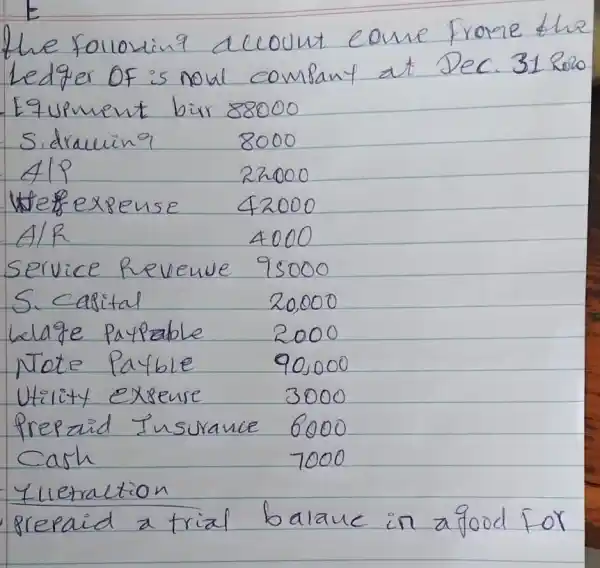 E
the following account come frome the
Ledger OF is now company at Dec. 31 2020
Equpment birr 88000
S. drawing 8000
A/P 22000
Wege expense 42000
A/R 4000
Service Revenue 95000
S. Capital 20,000
Wage PayPable 2000
Note Payble 90,000
Utility expense 3000
Prepaid Insurance 6000
Cash 7000
prepaid a trial balanc in a good for